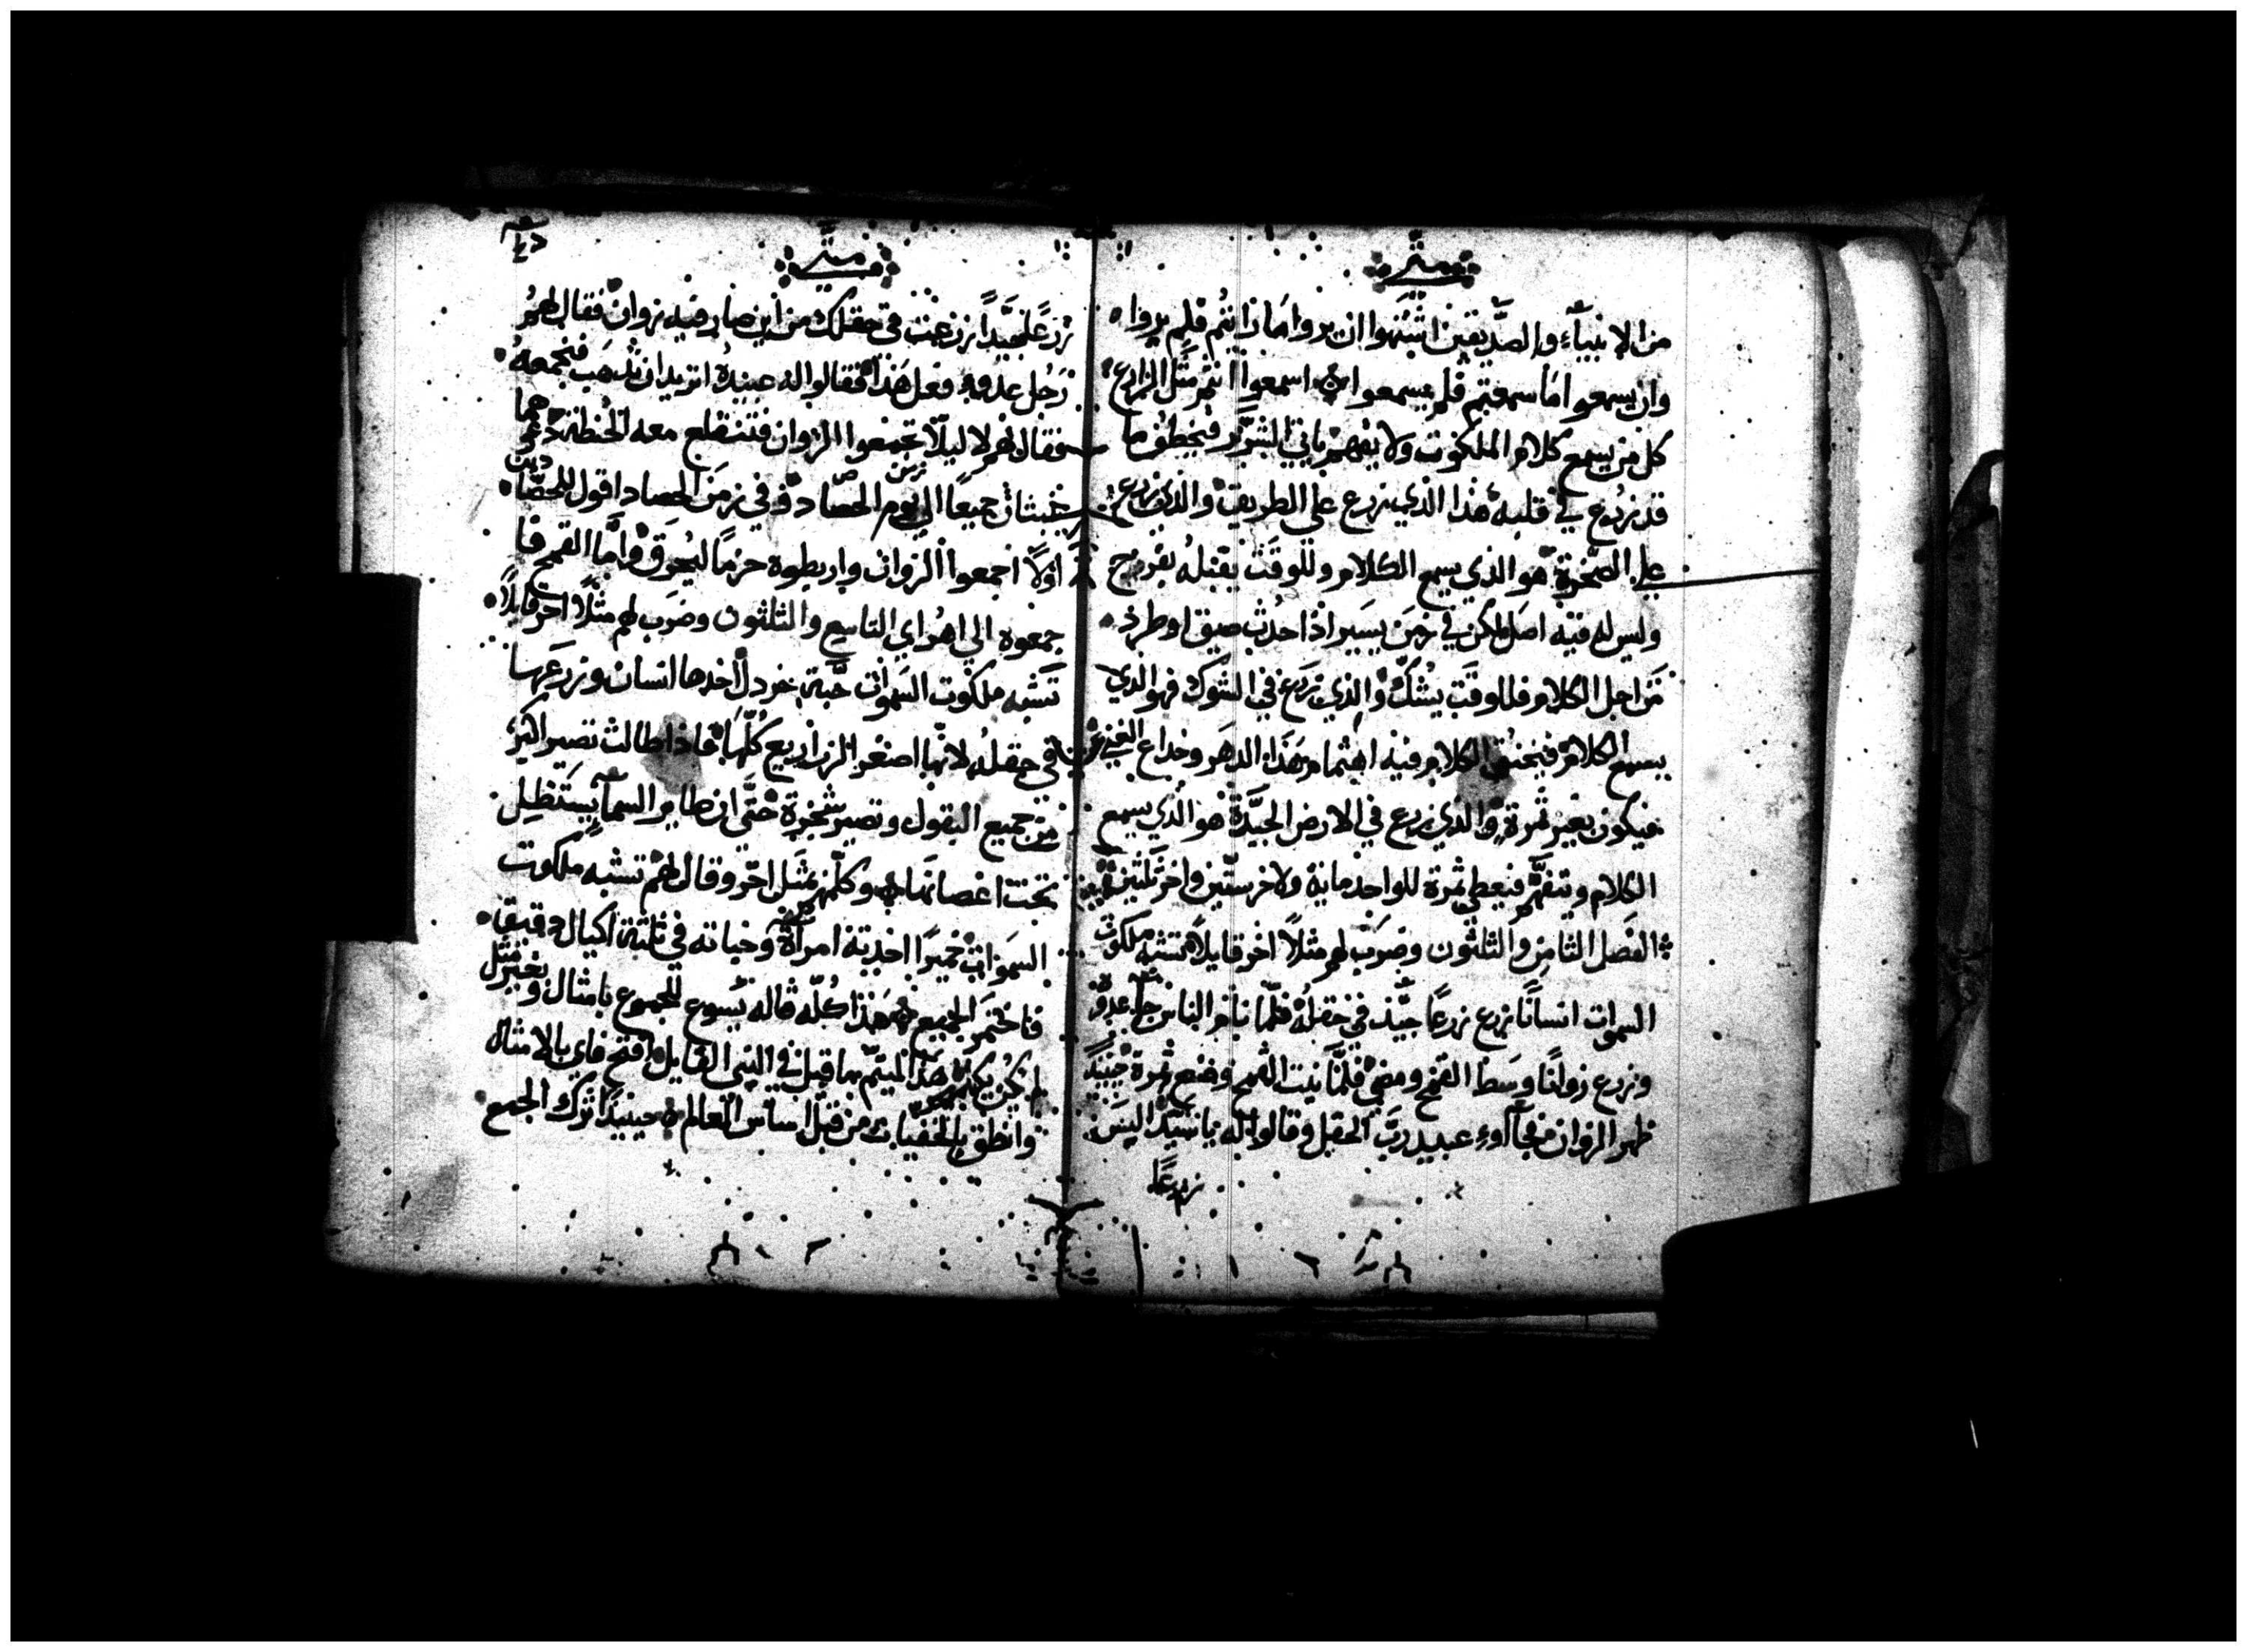 متى
من الانبياء والصديقين اشتهوا ان يروا ما رايتم فلم يروا
وان يسمعوا ما سمعتم فلم يسمعوا اسمعوا انتم مثل الزارع
كل من يسمع كلام الملكوت ولا يفهم ياتي الشرير فيخطف ما
قد زرع في قلبه هذا الذي زرع على الطريق والذي زرع
على الصخرة هو الذي يسمع الكلام وللوقت يقبله بفرح
وليس له فيه اصل لكن في زمن يسير اذا حدث ضيق او طرد
من اجل الكلام فللوقت يشك والذي زرع في الشوك فهو الذي
يسمع الكلام فيخنق الكلام فيه اهتمام هذا الدهر وخداع الغنى
فيكون بغير ثمرة والذي زرع في الارض الجيدة هو الذي يسمع
الكلام ويتفهم فيعطي ثمرة للواحد ماية ولاخر ستين واخر ثلثين
الفصل الثامن والثلثون وضرب لهم مثلا اخر قايلا تشبه ملكوت
السموات انسانا زرع زرعا جيد في حقله فلما نام الناس جا عدوه
وزرع زوانا وسط القمح ومضى فلما نبت القمح وصنع ثمرة حينيذ
ظهر الزوان فجآءوا عبيد رب الحقل وقالوا له يا سيد اليس
زرعا
متى
زرعا جيدا زرعت في حقلك من اين صار فيه زوان فقال لهم
رجل عدو فعل هذا فقالوا له عبيده اتريد ان نذهب فنجمعه
فقال لهم لا ليلا تجمعوا الزوان فتنقلع معه الحنطة دعوهما
ينبتان جميعا الى يوم الحصاد وفي زمن الحصاد اقول للحصادين
اولا اجمعوا الزوان واربطوه حزما ليحرق واما القمح فا
جمعوه الى اهراي التاسع والثلثون وضرب لهم مثلا اخر قايلا
تشبه ملكوت السموات حبة خردل اخدها انسان وزرعها
في حقله لانها اصغر الزراريع كلها فاذا طالت تصير اكبر
من جميع البقول وتصير شجرة حتى ان طاير السمآ يستظل
تحت اغصانها وكلمهم بمثل اخر وقال لهم تشبه ملكوت
السموات خميرا اخدته امراة وخباته في ثلثة اكيال دقيق
فاختمر الجميع هذا كله قاله يسوع للجموع بامثال وبغير مثل
لم يكن يكلمهم هذا ليتم ما قيل في النبي القايل افتح فاي بالامثال
وانطق بالخفيات من قبل اساس العالم حينيذ ترك الجمع